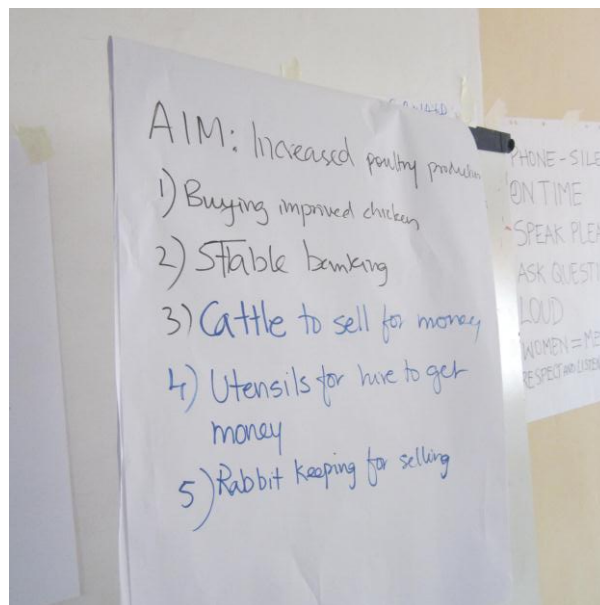 AIM: Increased poultry production
1) Buying improved chicken
2) STable banking
3) Cattle to sell for money
4) Utensils for hire to get
money
5) Rabbit keeping for selling
PHONE - SILE
ON TIME
SPEAK PLEA
ASK QUESTI
LOUD
WOMEN = ME
RESPECT AND LISTEN